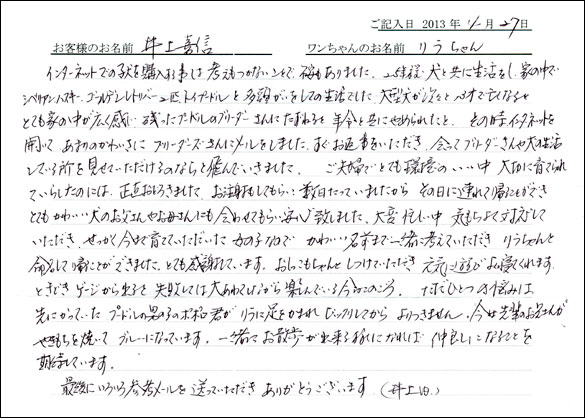 ご記入日 2013年 11月 27日
お客様のお名前 井上喜信 ワンちゃんのお名前 りうちゃん
インターネットでの子犬を購入する事は考えもつかないことで 不安もありました。二十数年程 犬と共に生活をし、家の中で
シベリアンハスキー、ゴールデンレトリバー2匹、トイプードルと多頭がいをしての生活でした 大型犬が次々と 亡くなり
とても家の中が広く感じ 残ったプードルのブリーダーさんにたずねると 年令と共にやめられたと、その時インターネットを
開いて あまりのかわいさに ブリーダーズさんにメールをしました。すぐお返事をいただき、会ってブリーダーさんや犬の生活
している所を見せていただけるのならと飛んでいきました。 ご夫婦でとても環境のいい中 大切に育てられ
ていらしたのには、正直おどろきました お注射もしてもらい 数日たっていましたから その日に連れて帰ることができ
とてもかわいい犬のお父さんやお母さんにも会わせてもらい安心致しました、大変忙しい中 気もちよく対応して
いただき、せっかく今まで育てていただいた 女の子なので かわいい名前まで一緒に考えていただき りうちゃんと
命名して帰ることができました。とても感謝しています。おしっこもちゃんとしつけていただき 元気に遊びよく寝てくれます。
ときどきゲージから出る子を 失敗しては大あわてしながら楽しんでいる今日このごろ。 ただひとつの悩みは
先にかっていた プードルの男の子のポポ君が りうに足をかまれ ビックリしてから よりつきません、今は先輩のお兄さんが
やきもちを焼いて ブルーになっています。一緒にお散歩が出来る様になれば 仲良しになることを
期待しています。
最後にいろいろ参考メールを送っていただき ありがとうございます (井上